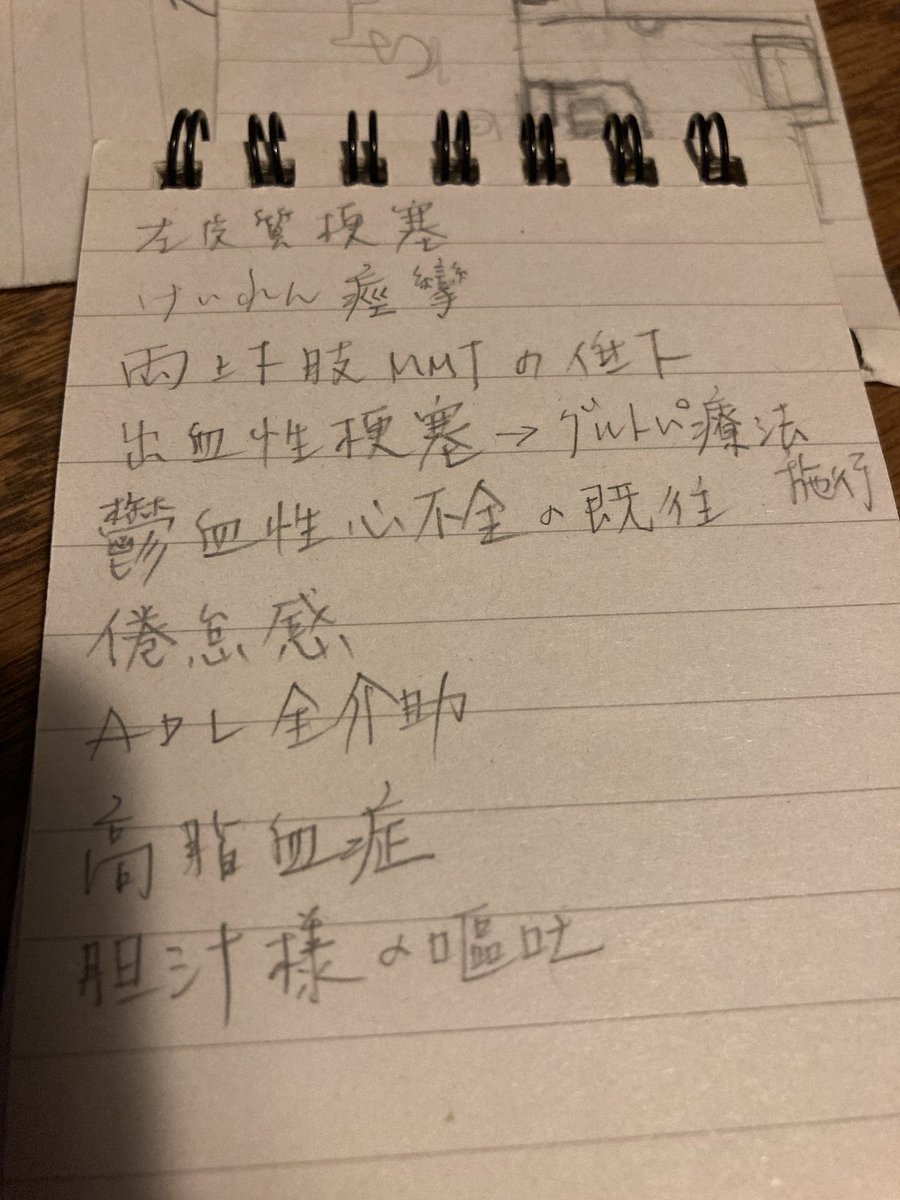 左皮質梗塞
けいれん 痙攣
両上下肢MMTの低下
出血性梗塞→グルトパ療法
施行
鬱血性心不全の既往
倦怠感
ADL全介助
高脂血症
胆汁様の嘔吐